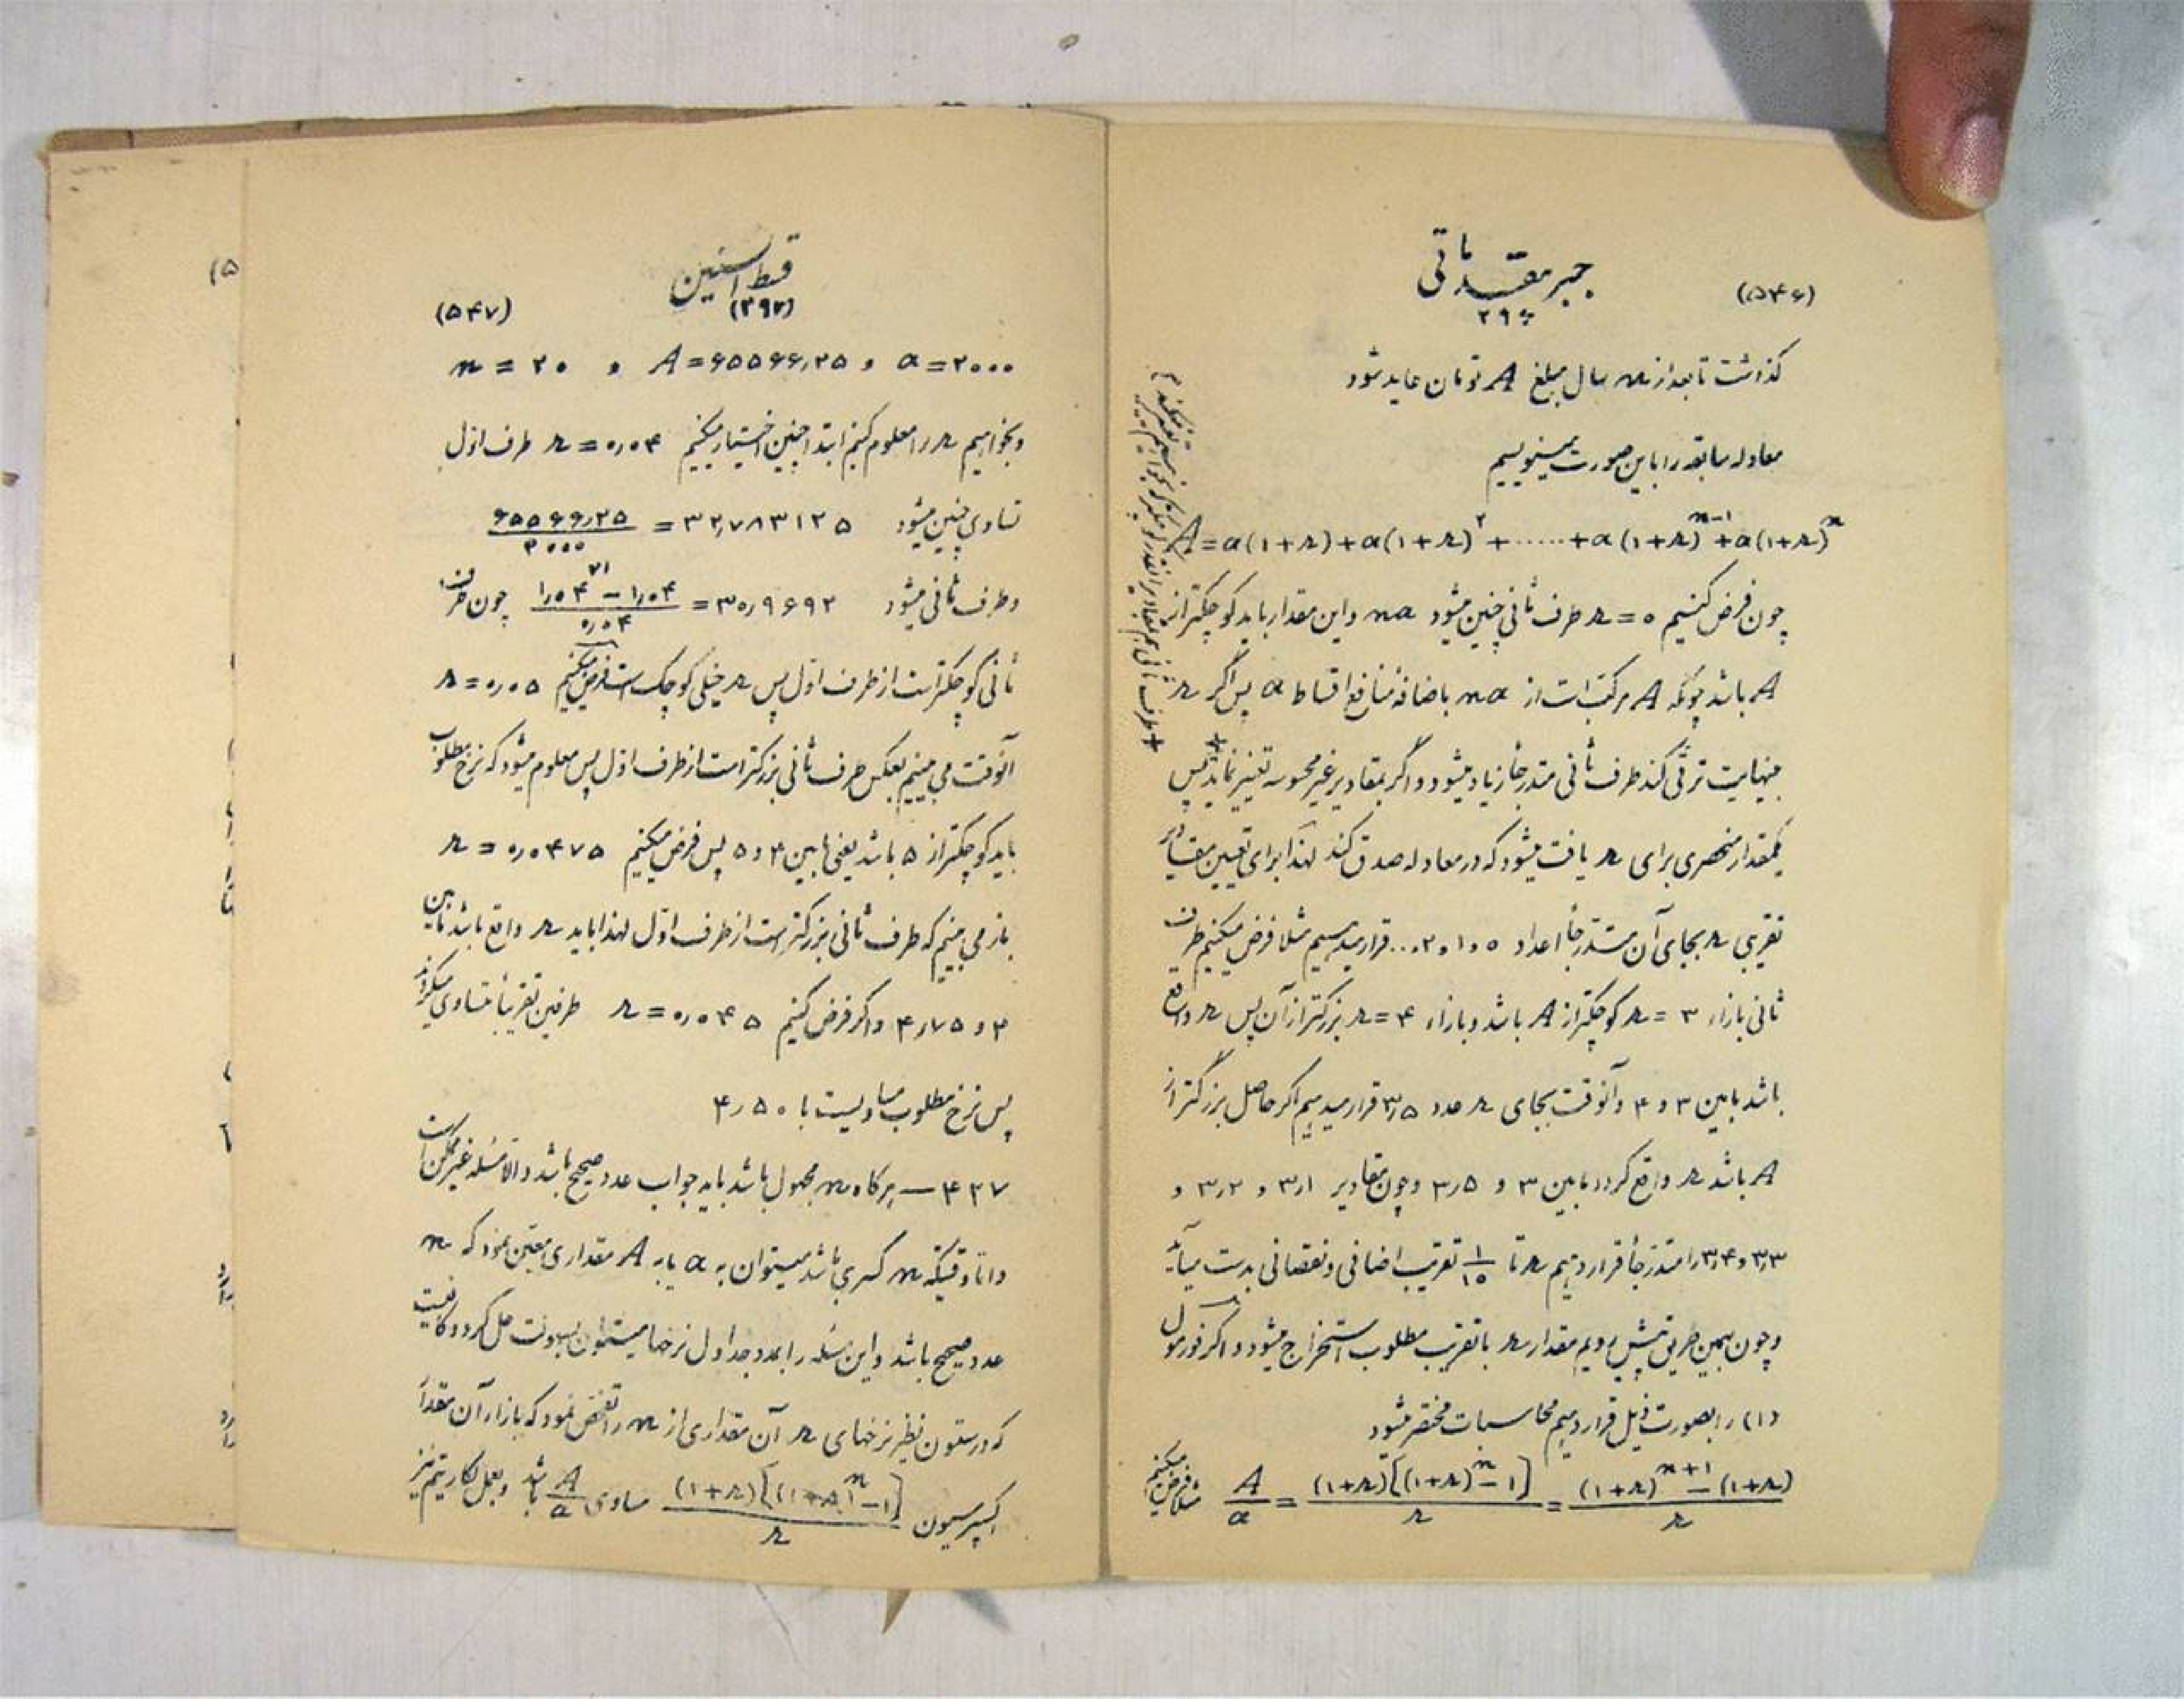 (۵۴۶)
جبر مقدماتی
۲۹۶
گذاشت تا بعد از n سال مبلغ A تومان عاید شود
معادله سابقه را باین صورت مینویسیم
A = a(1+r) + a(1+r)^۲ + ..... + a(1+r)^{n-1} + a(1+r)^n
چون فرض کنیم r = ۰ طرف ثانی چنین میشود na و این مقدار باید کوچکتر از
A باشد چونکه A مرکب است از na باضافهٔ منافع اقساط a پس اگر r
بینهایت ترقی کند طرف ثانی متدرجاً زیاد میشود و اگر بمقادیر غیر محسوسه تغییر نماید + پس
یکمقدار منحصری برای r یافت میشود که در معادله صدق کند لهذا برای تعیین مقادیر
تقریبی r بجای آن متدرجاً اعداد ۰ و ۱ و ۲ و ... قرار میدهیم مثلا فرض میکنیم طرف
ثانی بازاء r = ۳ کوچکتر از A باشد و بازاء r = ۴ بزرگتر از آن پس r واقع
باشد مابین ۳ و ۴ و آنوقت بجای r عدد ۳٫۵ قرار میدهیم اگر حاصل بزرگتر از
A باشد r واقع گردد مابین ۳ و ۳٫۵ و چون مقادیر ۳٫۱ و ۳٫۲ و
۳٫۳ و ۳٫۴ را متدرجاً قرار دهیم r تا ۱/۱۰ تقریب اضافی و نقصانی بدست میآید
و چون بهمین طریق پیش رویم مقدار r با تقریب مطلوب استخراج میشود و اگر فورمول
(۱) را بصورت ذیل قرار دهیم محاسبات مختصر میشود
A/a = (1+r)[(1+r)^n − 1]/r = (1+r)^{n+1} − (1+r)/r مثلا فرض میکنیم
+ طرف ثانی هم بمقادیر
(۵۴۷)
قسط السنین
(۲۹۷)
a = ۲۰۰۰ و A = ۶۵۵۶۶٫۲۵ و n = ۲۰
و بخواهیم r را معلوم کنیم ابتدا چنین اختیار میکنیم r = ۰٫۰۴ طرف اول
تساوی چنین میشود ۶۵۵۶۶٫۲۵/۲۰۰۰ = ۳۲٫۷۸۳۱۲۵
و طرف ثانی میشود ۱٫۰۴^۲۱ − ۱٫۰۴/۰٫۰۴ = ۳۰٫۹۶۹۲ چون طرف
ثانی کوچکتر است از طرف اول پس r خیلی کوچک است فرض میکنیم r = ۰٫۰۵
آنوقت می بینیم بعکس طرف ثانی بزرگتر است از طرف اول پس معلوم میشود که نرخ مطلوب
باید کوچکتر از ۵ باشد یعنی مابین ۴ و ۵ پس فرض میکنیم r = ۰٫۰۴۷۵
باز می بینیم که طرف ثانی بزرگتر است از طرف اول لهذا باید r واقع باشد مابین
۴ و ۴٫۷۵ و اگر فرض کنیم r = ۰٫۰۴۵ طرفین تقریباً متساوی میگردند
پس نرخ مطلوب مساویست با ۴٫۵۰
۴۲۷ — هرگاه n مجهول باشد باید جواب عدد صحیح باشد و الا مسئله غیر ممکن است
و اما وقتیکه n کسری باشد میتوان به a یا به A مقداری معین نمود که n
عدد صحیح باشد و این مسئله را بمدد جداول نرخها میتوان بسهولت حل کرد و کافیست
که در ستون نظیر نرخهای r آن مقداری از n را تفحص نمود که بازاء آن مقدار
اکسپرسیون (1+r)[(1+r)^n − 1]/r مساوی A/a باشد و بعمل لگاریتم نیز